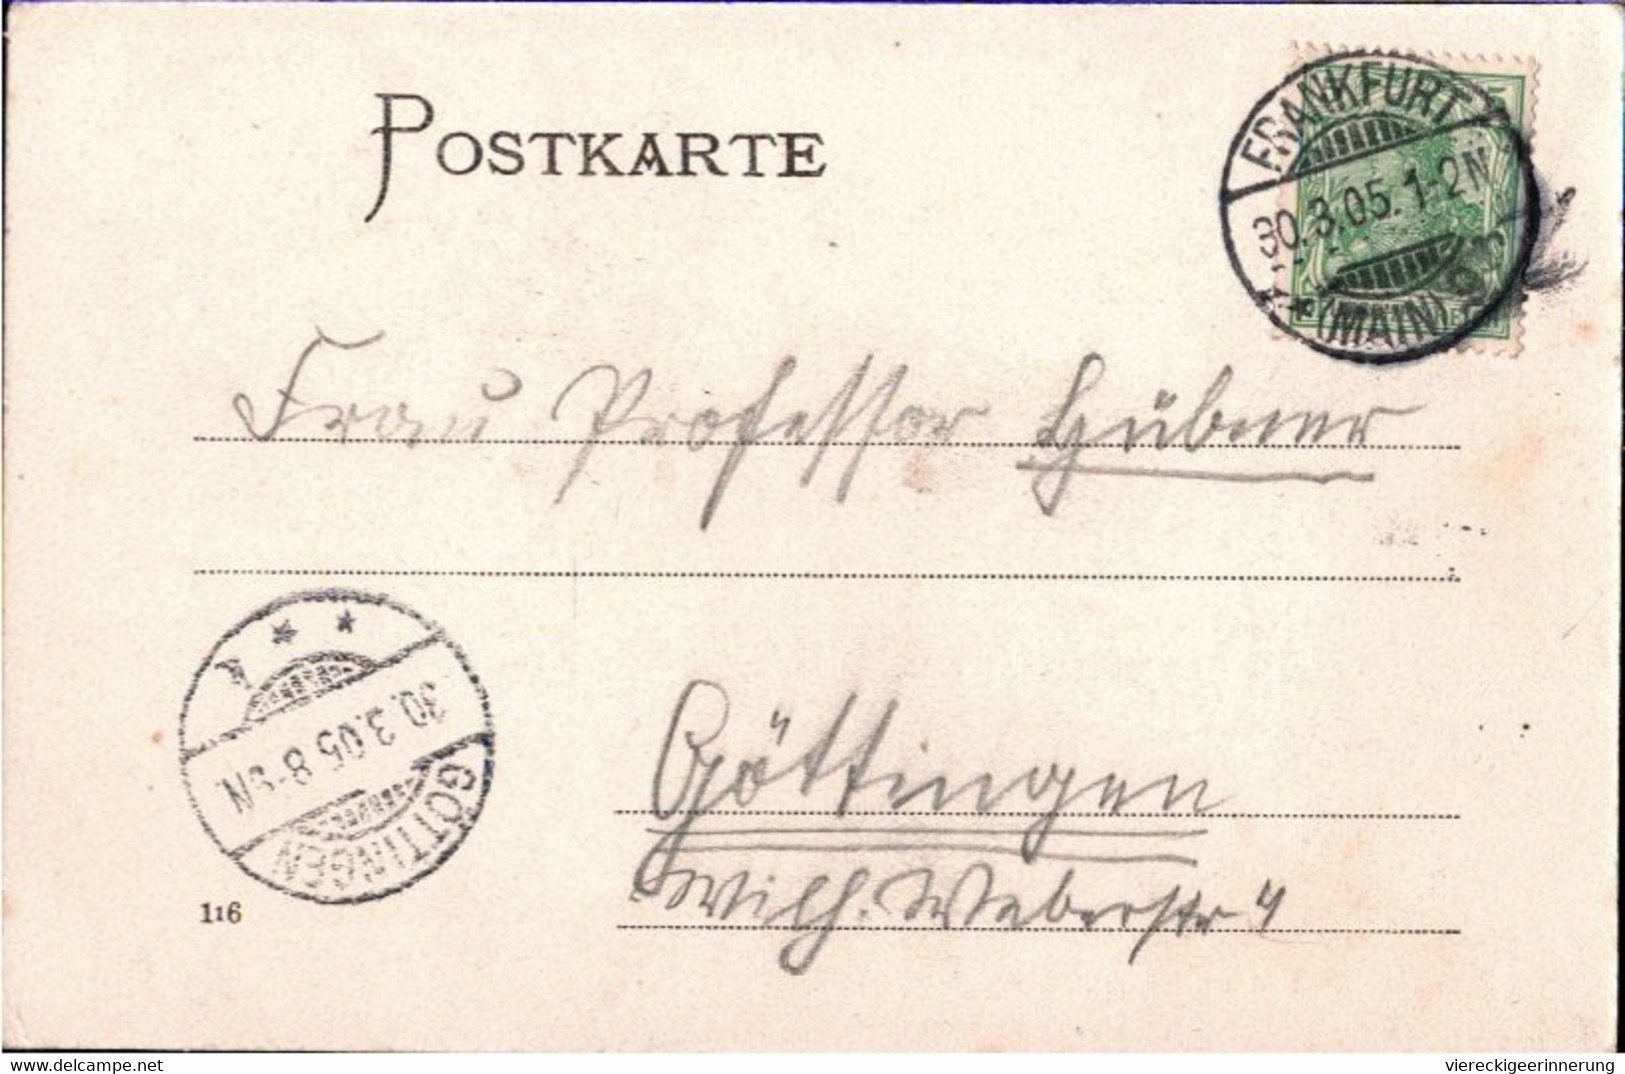 POSTKARTE
FRANKFURT
30.3.05.1-2N
* * (MAIN)
Frau Professor Hübner
30.3.05 8-9N.
GÖTTINGEN
Göttingen
Wilh. Weberstr 4
116
delcampe.net
viereckigeerinnerung